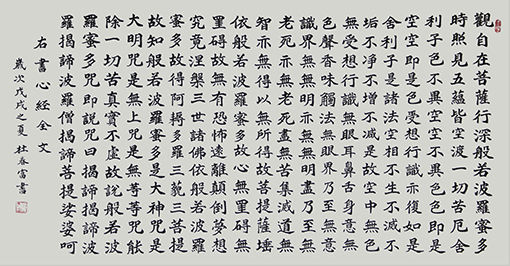 觀自在菩薩行深般若波羅蜜多
時照見五蘊皆空渡一切苦厄舍
利子色不異空空不異色色即是
空空即是色受想行識亦復如是
舍利子是諸法空相不生不滅不
垢不淨不增不減是故空中無色
無受想行識無眼耳鼻舌身意無
色聲香味觸法無眼界乃至無意
識界無無明亦無無明盡乃至無
老死亦無老死盡無苦集滅道無
智亦無得以無所得故菩提薩埵
依般若波羅蜜多故心無罣礙無
罣礙故無有恐怖遠離顛倒夢想
究竟涅槃三世諸佛依般若波羅
蜜多故得阿耨多羅三藐三菩提
故知般若波羅蜜多是大神咒是
大明咒是無上咒是無等等咒能
除一切苦真實不虛故說般若波
羅蜜多咒即說咒曰揭諦揭諦波
羅揭諦波羅僧揭諦菩提娑婆呵
右書心經全文
歲次戊戌之夏 杜春富書